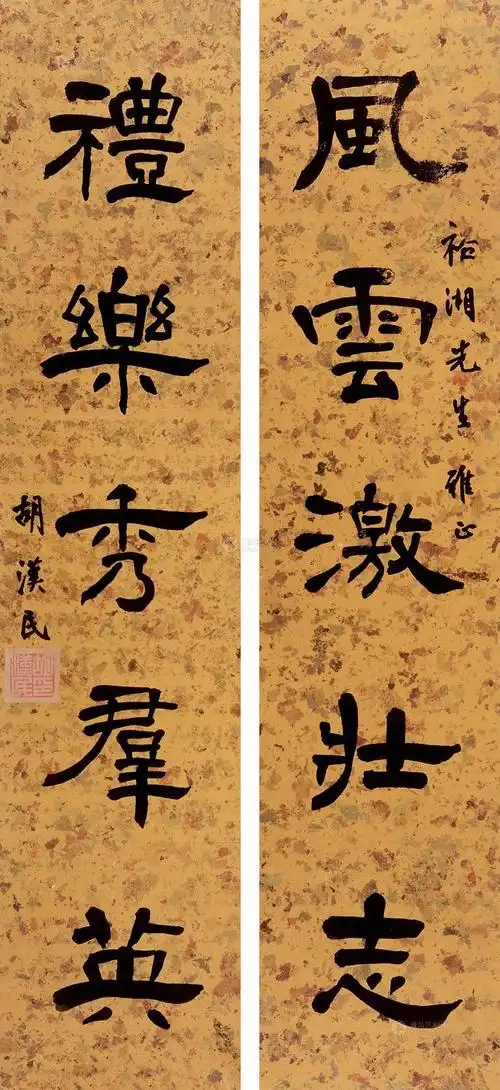 風雲激壯志
裕湘先生雅正
禮樂秀羣英
胡漢民